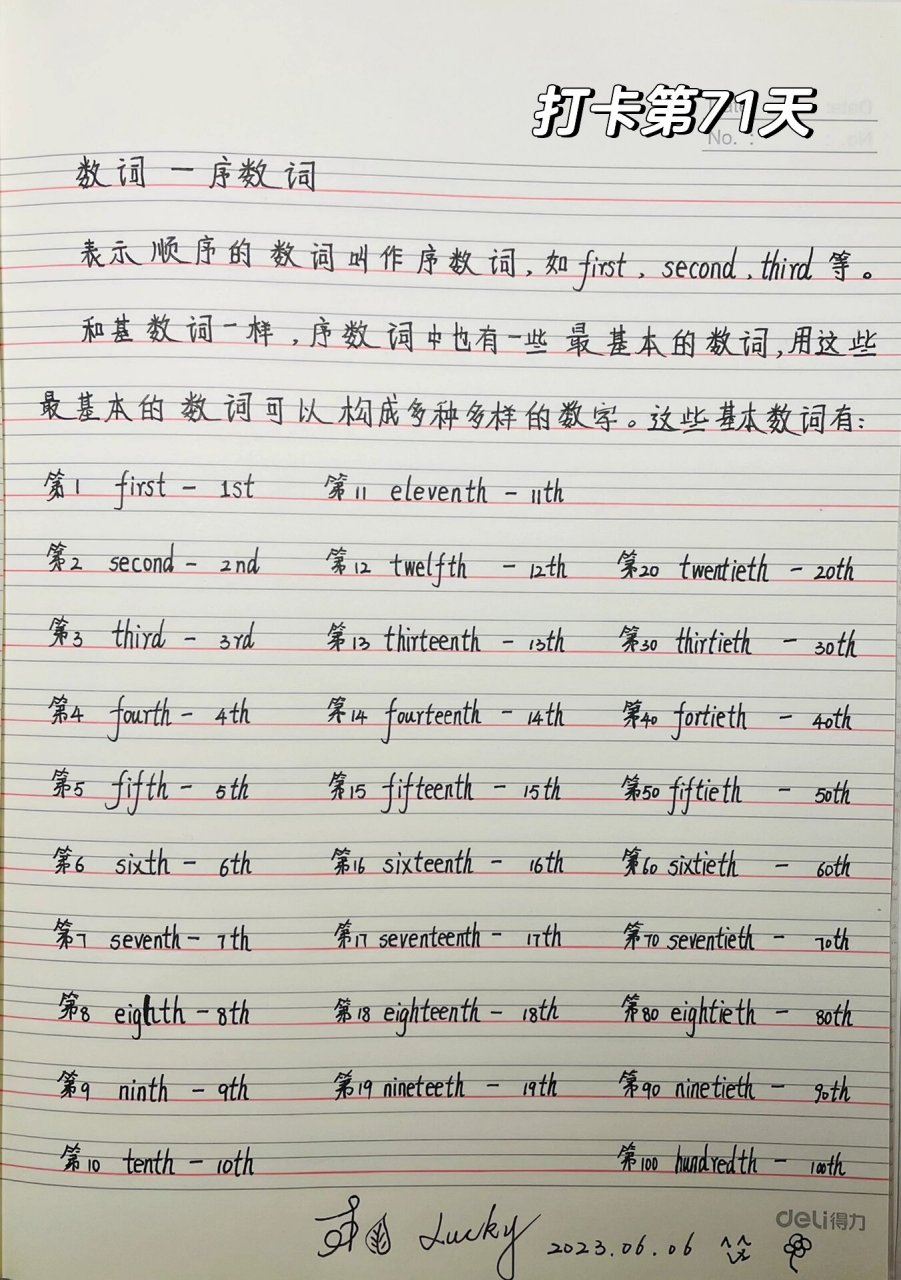 打卡第71天
No. :
数词 — 序数词
表示顺序的数词叫作序数词,如first, second, third等。
和基数词一样,序数词中也有一些最基本的数词,用这些
最基本的数词可以构成多种多样的数字。这些基本数词有:
第1 first - 1st 第11 eleventh - 11th
第2 second - 2nd 第12 twelfth - 12th 第20 twentieth - 20th
第3 third - 3rd 第13 thirteenth - 13th 第30 thirtieth - 30th
第4 fourth - 4th 第14 fourteenth - 14th 第40 fortieth - 40th
第5 fifth - 5th 第15 fifteenth - 15th 第50 fiftieth - 50th
第6 sixth - 6th 第16 sixteenth - 16th 第60 sixtieth - 60th
第7 seventh - 7th 第17 seventeenth - 17th 第70 seventieth - 70th
第8 eighth - 8th 第18 eighteenth - 18th 第80 eightieth - 80th
第9 ninth - 9th 第19 nineteeth - 19th 第90 ninetieth - 90th
第10 tenth - 10th 第100 hundredth - 100th
deli得力
Lucky 2023.06.06